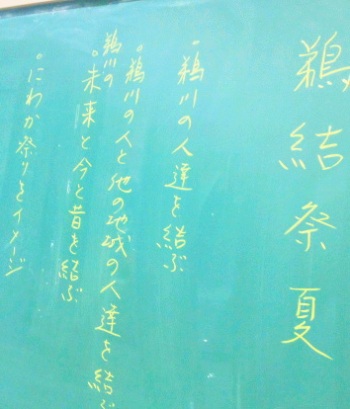 鵡結祭夏
・鵡川の人達を結ぶ
・鵡川の人と他の地域の人達を結ぶ
・鵡川の未来と今と昔を結ぶ
・にわか祭りをイメージ